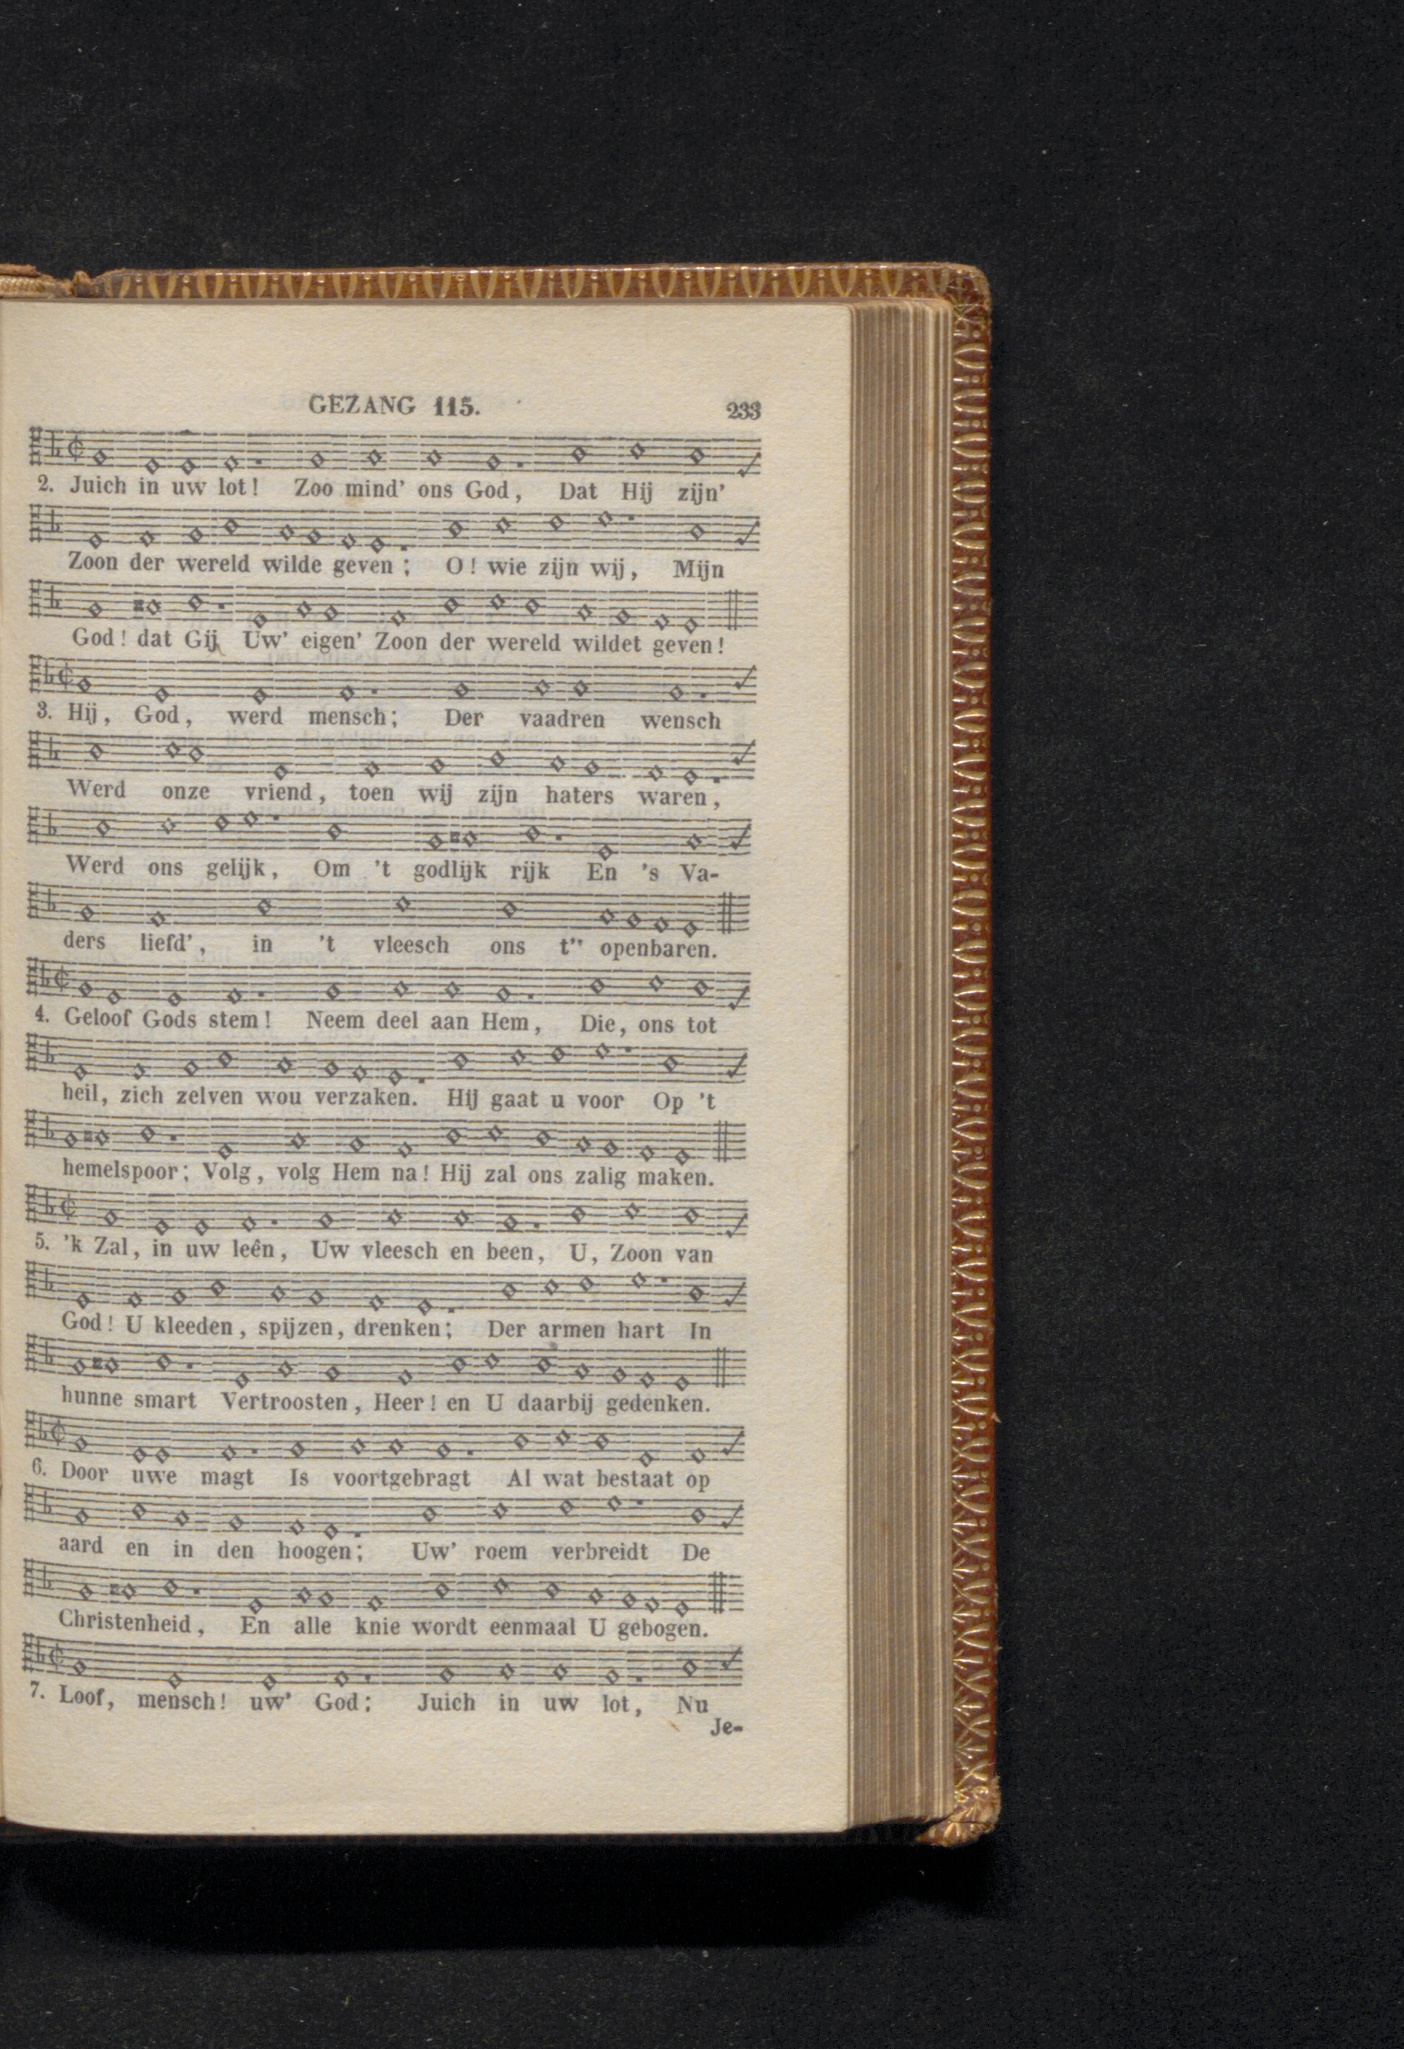 GEZANG 115. 233
2. Juich in uw lot! Zoo mind' ons God, Dat Hij zijn'
Zoon der wereld wilde geven; O! wie zijn wij, Mijn
God! dat Gij Uw' eigen' Zoon der wereld wildet geven!
3. Hij, God, werd mensch; Der vaadren wensch
Werd onze vriend, toen wij zijn haters waren,
Werd ons gelijk, Om 't godlijk rijk En 's Va-
ders liefd', in 't vleesch ons t'' openbaren.
4. Geloof Gods stem! Neem deel aan Hem, Die, ons tot
heil, zich zelven wou verzaken. Hij gaat u voor Op 't
hemelspoor; Volg, volg Hem na! Hij zal ons zalig maken.
5. 'k Zal, in uw leên, Uw vleesch en been, U, Zoon van
God! U kleeden, spijzen, drenken; Der armen hart In
hunne smart Vertroosten, Heer! en U daarbij gedenken.
6. Door uwe magt Is voortgebragt Al wat bestaat op
aard en in den hoogen; Uw' roem verbreidt De
Christenheid, En alle knie wordt eenmaal U gebogen.
7. Loof, mensch! uw' God; Juich in uw lot, Nu
Je-